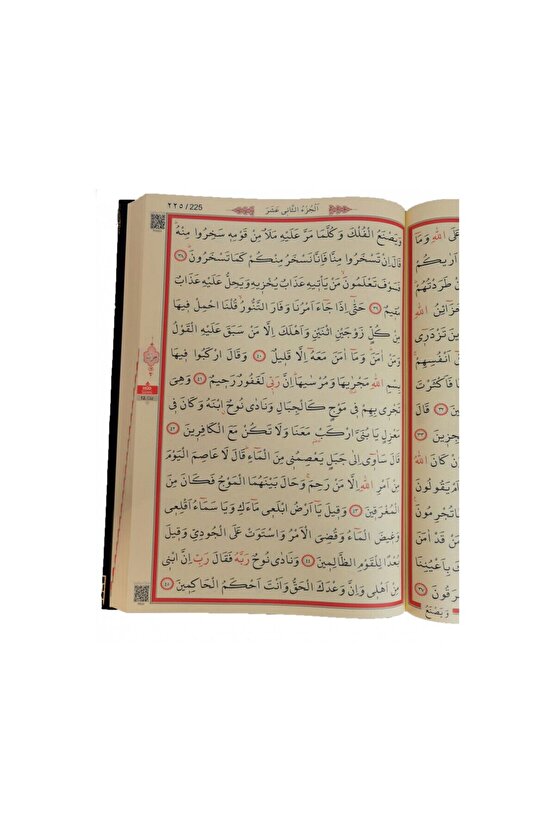 ٢٢٥ / 225
اَلْجُزْءُ الثَّانِى عَشَرَ
وَيَصْنَعُ الْفُلْكَ وَكُلَّمَا مَرَّ عَلَيْهِ مَلَأٌ مِنْ قَوْمِهِ سَخِرُوا مِنْهُ
قَالَ اِنْ تَسْخَرُوا مِنَّا فَاِنَّا نَسْخَرُ مِنْكُمْ كَمَا تَسْخَرُونَ ٣٨
فَسَوْفَ تَعْلَمُونَ مَنْ يَأْتِيهِ عَذَابٌ يُخْزِيهِ وَيَحِلُّ عَلَيْهِ عَذَابٌ
مُقِيمٌ ٣٩ حَتّٰى اِذَا جَاءَ اَمْرُنَا وَفَارَ التَّنُّورُ قُلْنَا احْمِلْ فِيهَا
مِنْ كُلٍّ زَوْجَيْنِ اثْنَيْنِ وَاَهْلَكَ اِلَّا مَنْ سَبَقَ عَلَيْهِ الْقَوْلُ
وَمَنْ اٰمَنَ وَمَا اٰمَنَ مَعَهُ اِلَّا قَلِيلٌ ٤٠ وَقَالَ ارْكَبُوا فِيهَا
بِسْمِ اللّٰهِ مَجْرٰۭيهَا وَمُرْسٰيهَا اِنَّ رَبِّى لَغَفُورٌ رَحِيمٌ ٤١ وَهِىَ
تَجْرِى بِهِمْ فِى مَوْجٍ كَالْجِبَالِ وَنَادٰى نُوحٌ ابْنَهُ وَكَانَ فِى
مَعْزِلٍ يَا بُنَىَّ ارْكَبْ مَعَنَا وَلَا تَكُنْ مَعَ الْكَافِرِينَ ٤٢
قَالَ سَاٰوِى اِلٰى جَبَلٍ يَعْصِمُنِى مِنَ الْمَاءِ قَالَ لَا عَاصِمَ الْيَوْمَ
مِنْ اَمْرِ اللّٰهِ اِلَّا مَنْ رَحِمَ وَحَالَ بَيْنَهُمَا الْمَوْجُ فَكَانَ مِنَ
الْمُغْرَقِينَ ٤٣ وَقِيلَ يَا اَرْضُ ابْلَعِى مَاءَكِ وَيَا سَمَاءُ اَقْلِعِى
وَغِيضَ الْمَاءُ وَقُضِىَ الْاَمْرُ وَاسْتَوَتْ عَلَى الْجُودِىِّ وَقِيلَ
بُعْدًا لِلْقَوْمِ الظَّالِمِينَ ٤٤ وَنَادٰى نُوحٌ رَبَّهُ فَقَالَ رَبِّ اِنَّ ابْنِى
مِنْ اَهْلِى وَاِنَّ وَعْدَكَ الْحَقُّ وَاَنْتَ اَحْكَمُ الْحَاكِمِينَ ٤٥